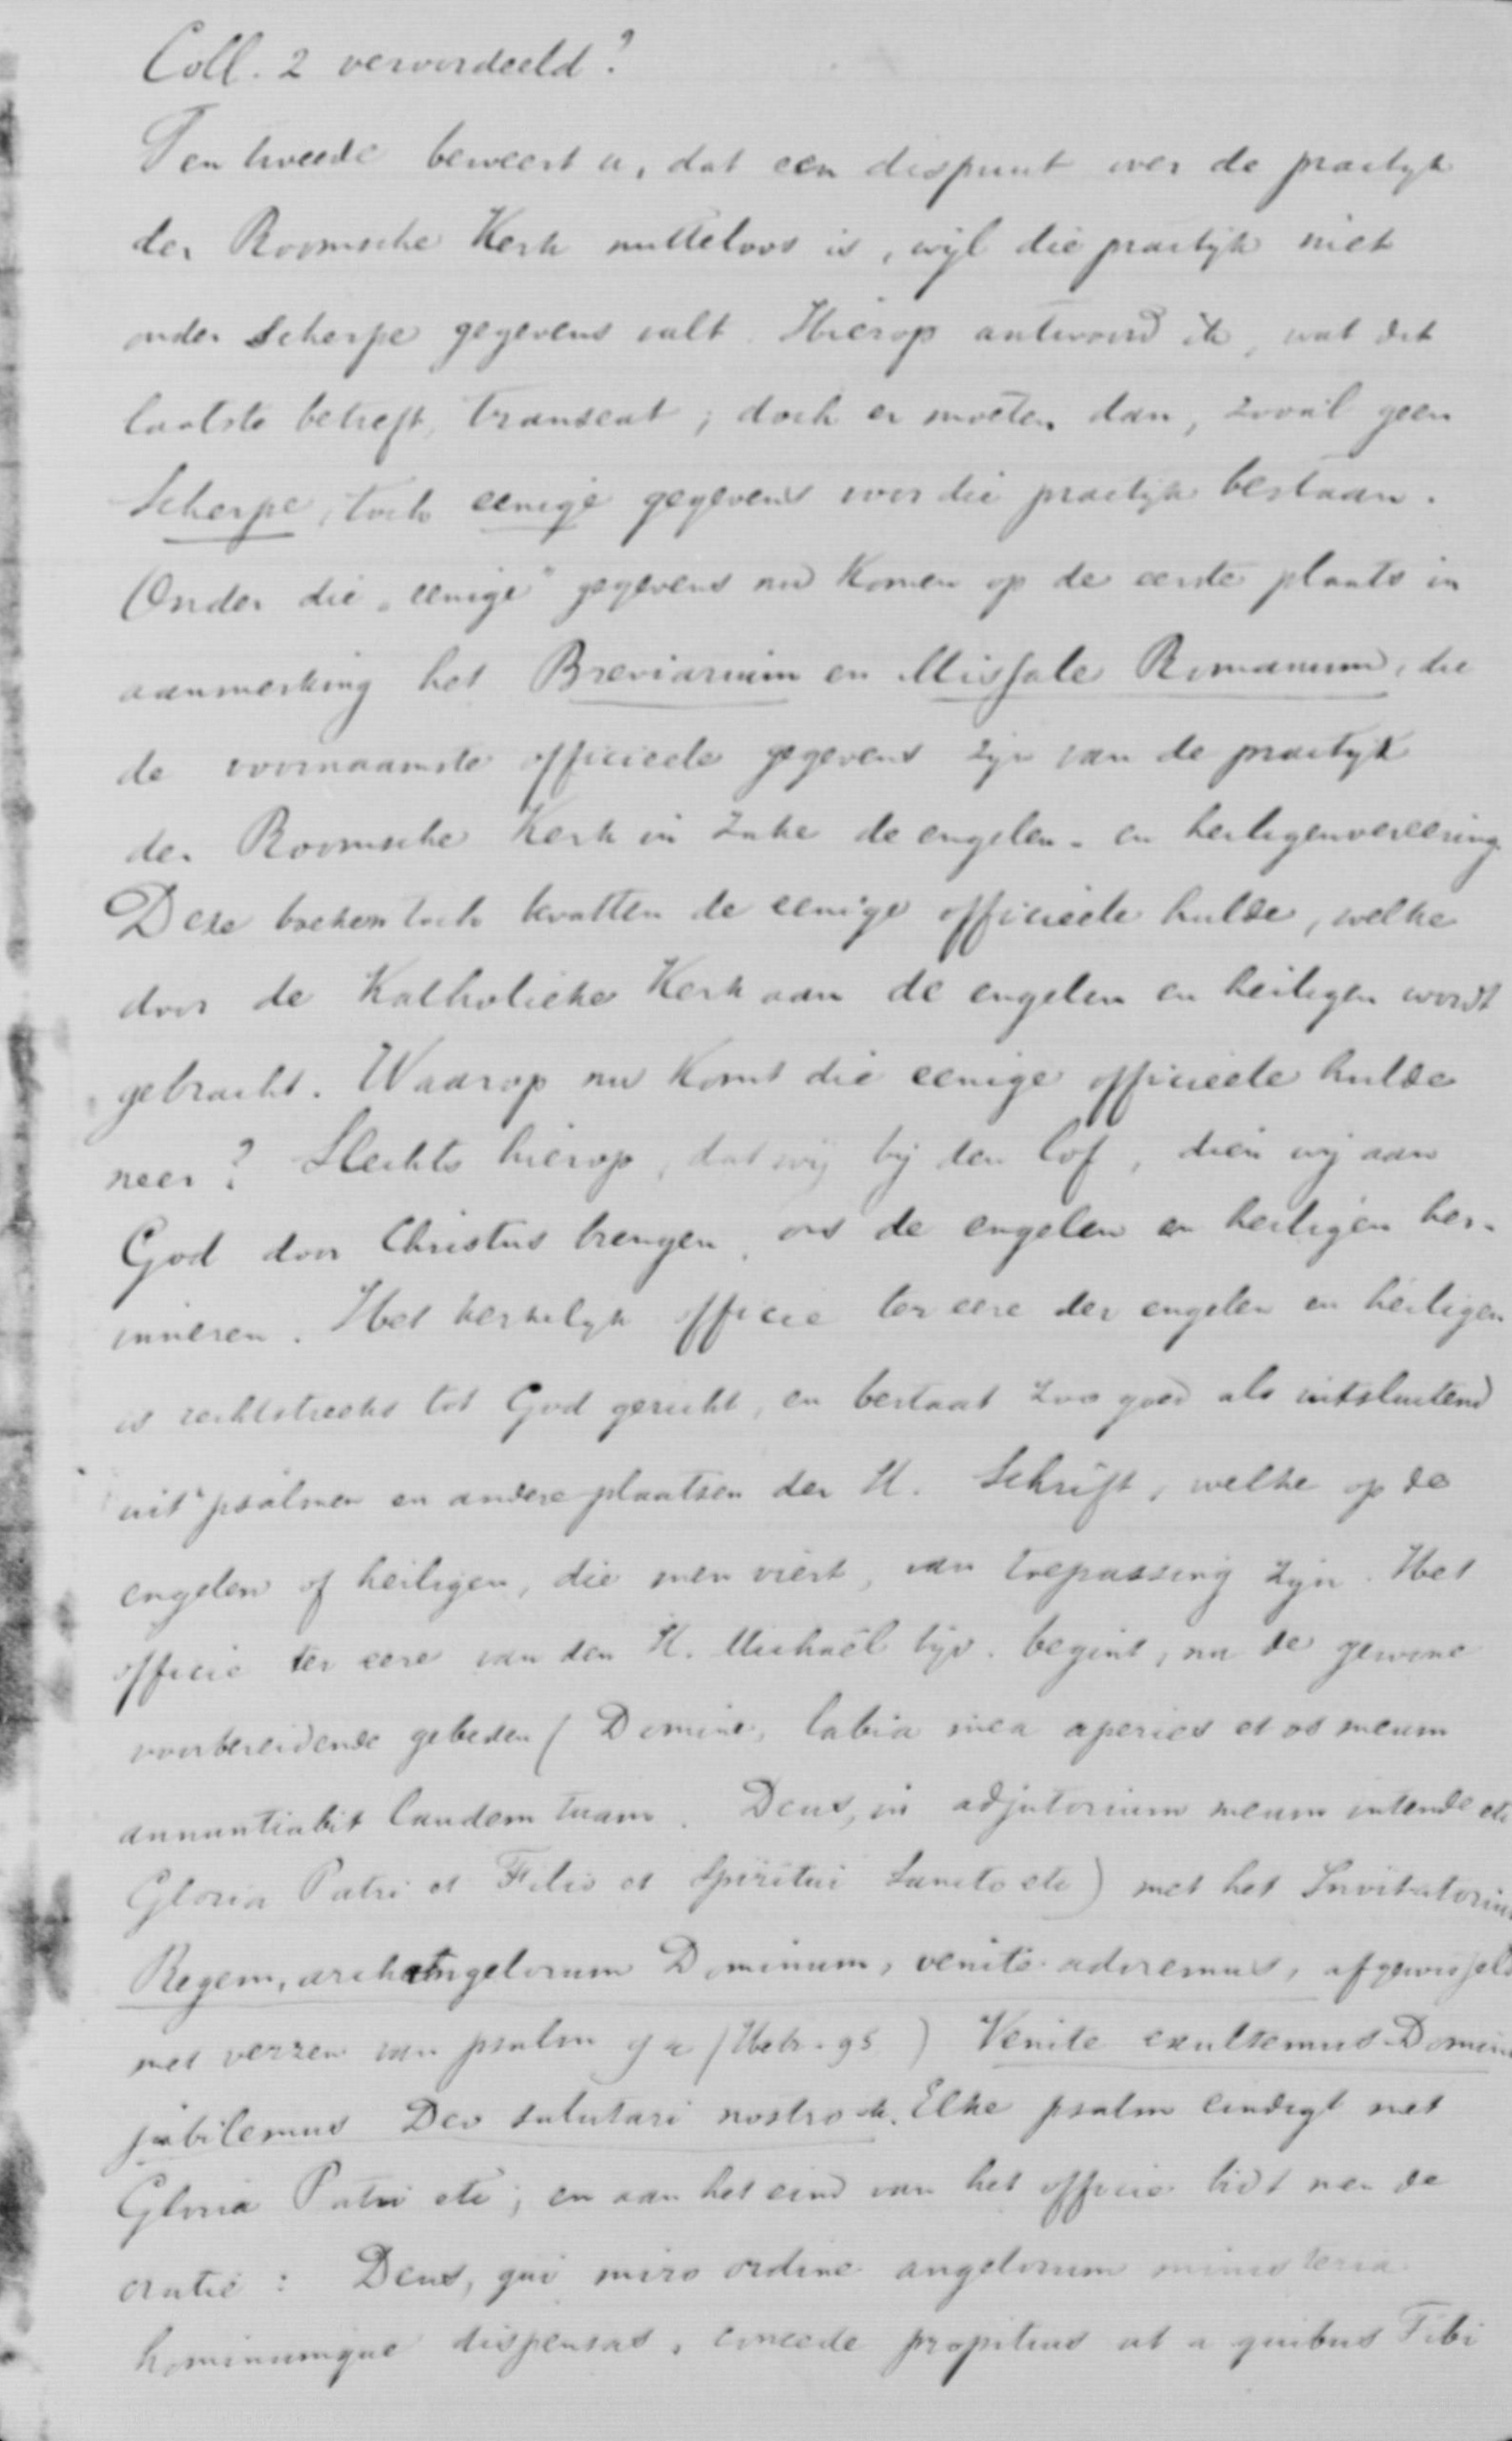 Coll. 2 veroordeeld?
Ten tweede beweert u, dat een dispuut over de practyk
der Roomsche Kerk nutteloos is, wijl die practijk niet
onder scherpe gegevens valt. Hierop antwoord ik, wat dit
laatste betreft, transeat; doch er moeten dan, zooal geen
scherpe, toch eenige gegevens over die practijk bestaan.
Onder die „eenige" gegevens nu komen op de eerste plaats in
aanmerking het Breviarium en Missale Romanum, die
de voornaamste officieele gegevens zijn van de practyk
der Roomsche Kerk in zake de engelen- en heiligenvereering.
Deze boeken toch bevatten de eenige officieele hulde, welke
door de Katholieke Kerk aan de engelen en heiligen wordt
gebracht. Waarop nu komt die eenige officieele hulde
neer? Slechts hierop, dat wij bij den lof, dien wij aan
God door Christus brengen, ons de engelen en heiligen her-
inneren. Het kerkelyk officie ter eere der engelen en heiligen
is rechtstreeks tot God gericht, en bestaat zoo goed als uitsluitend
uit psalmen en andere plaatsen der H. Schrift, welke op de
engelen of heiligen, die men viert, van toepassing zijn. Het
officie ter eere van den H. Michaël bijv. begint, na de gewone
voorbereidende gebeden (Domine, labia mea aperies et os meum
annuntiabit laudem tuam. Deus, in adjutorium meum intende etc
Gloria Patri et Filio et Spiritui Sancto etc) met het Invitatorium
Regem, archangelorum Dominum, venite adoremus, afgewisseld
met verzen van psalm 94 (Hebr. 95) Venite exultemus Domino
jubilemus Deo salutari nostro etc. Elke psalm eindigt met
Gloria Patri etc; en aan het eind van het officie bidt men de
oratie: Deus, qui miro ordine angelorum ministeria
hominumque dispensas, concede propitius ut a quibus Tibi